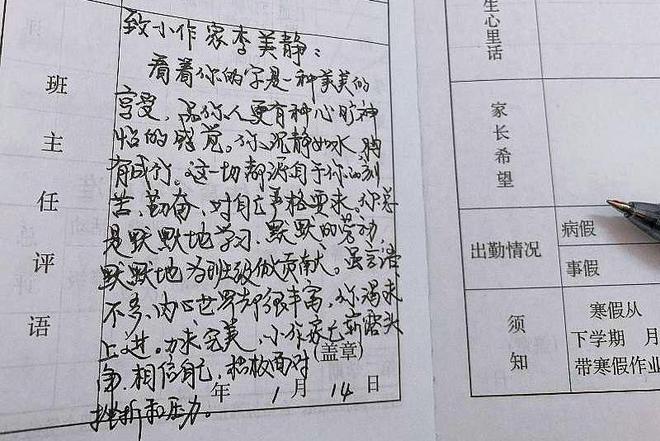 班主任评语
致小作家李美静：
看着你的字是一种美美的
享受，品你人更有种心旷神
怡的感觉。你沉静如水，胸
有成竹。这一切都源自于你的刻
苦、勤奋、对自己严格要求。你总
是默默地学习，默默的劳动
默默地为班级做贡献。虽言语
不多，内心世界却很丰富，你渴求
上进。力求完美，小作家已崭露头
角，相信自己，积极面对
挫折和压力。
(盖章)
年 1 月 14 日
生心里话
家长希望
出勤情况
病假
事假
须知
寒假从
下学期 月
带寒假作业